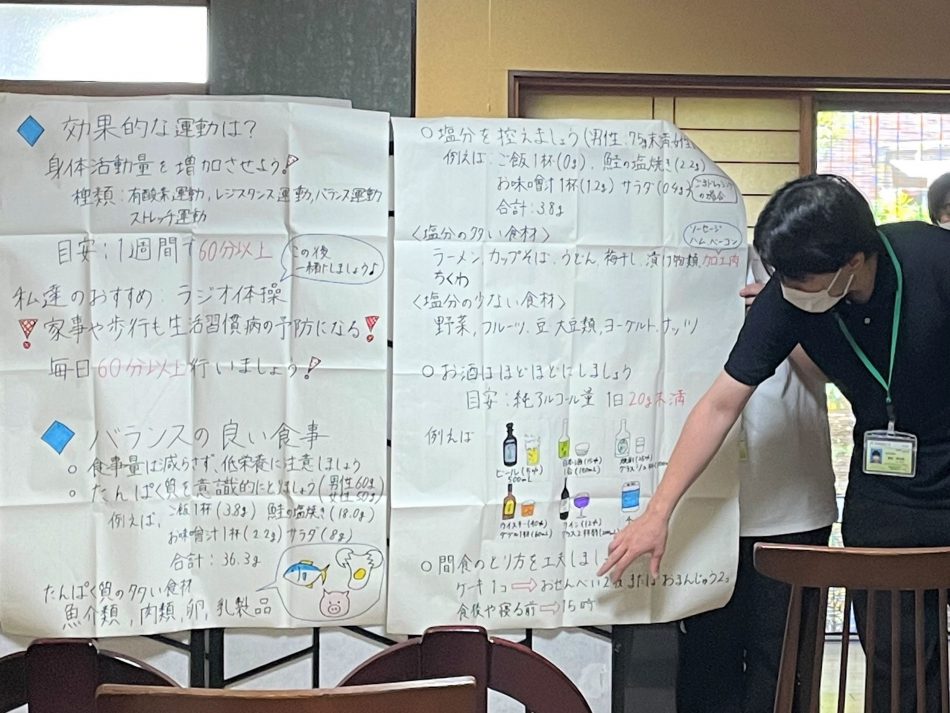 効果的な運動は?
身体活動量を増加させよう!
種類:有酸素運動,レジスタンス運動,バランス運動
ストレッチ運動
目安:1週間で60分以上
この後
一緒にしましょう♪
私達のおすすめ:ラジオ体操
家事や歩行も生活習慣病の予防になる
毎日60分以上行いましょう!
バランスの良い食事
○食事量は減らさず,低栄養に注意しましょう
○たんぱく質を意識的にとりましょう(男性60g
女性50g)
例えば,ご飯1杯(3.8g)鮭の塩焼き(18.0g)
お味噌汁1杯(2.2g)サラダ(.8g)
合計:36.3g
たんぱく質の多い食材
魚介類,肉類,卵,乳製品
○塩分を控えましょう(男性:7.5g未満 女性
例えば:ご飯1杯(0g),鮭の塩焼き(2.2g)
お味噌汁1杯(1.2g)サラダ(0.4g)
合計:3.8g
〈塩分の多い食材〉
ソーセージ
ハム,ベーコン
ラーメン,カップそば,うどん,梅干し,漬け物類,加工肉
ちくわ
〈塩分の少ない食材〉
野菜,フルーツ,豆,大豆類,ヨーグルト,ナッツ
○お酒はほどほどにしましょう
目安:純アルコール量 1日20g未満
例えば
ビール(5%)
500mL
日本酒(15%)
ウイスキー(40%)
ワイン(12%)
○間食のとり方を工夫しまし
ケーキ1コ⇒おせんべい2枚またはおまんじゅう2コ
食後や寝る前⇒15時